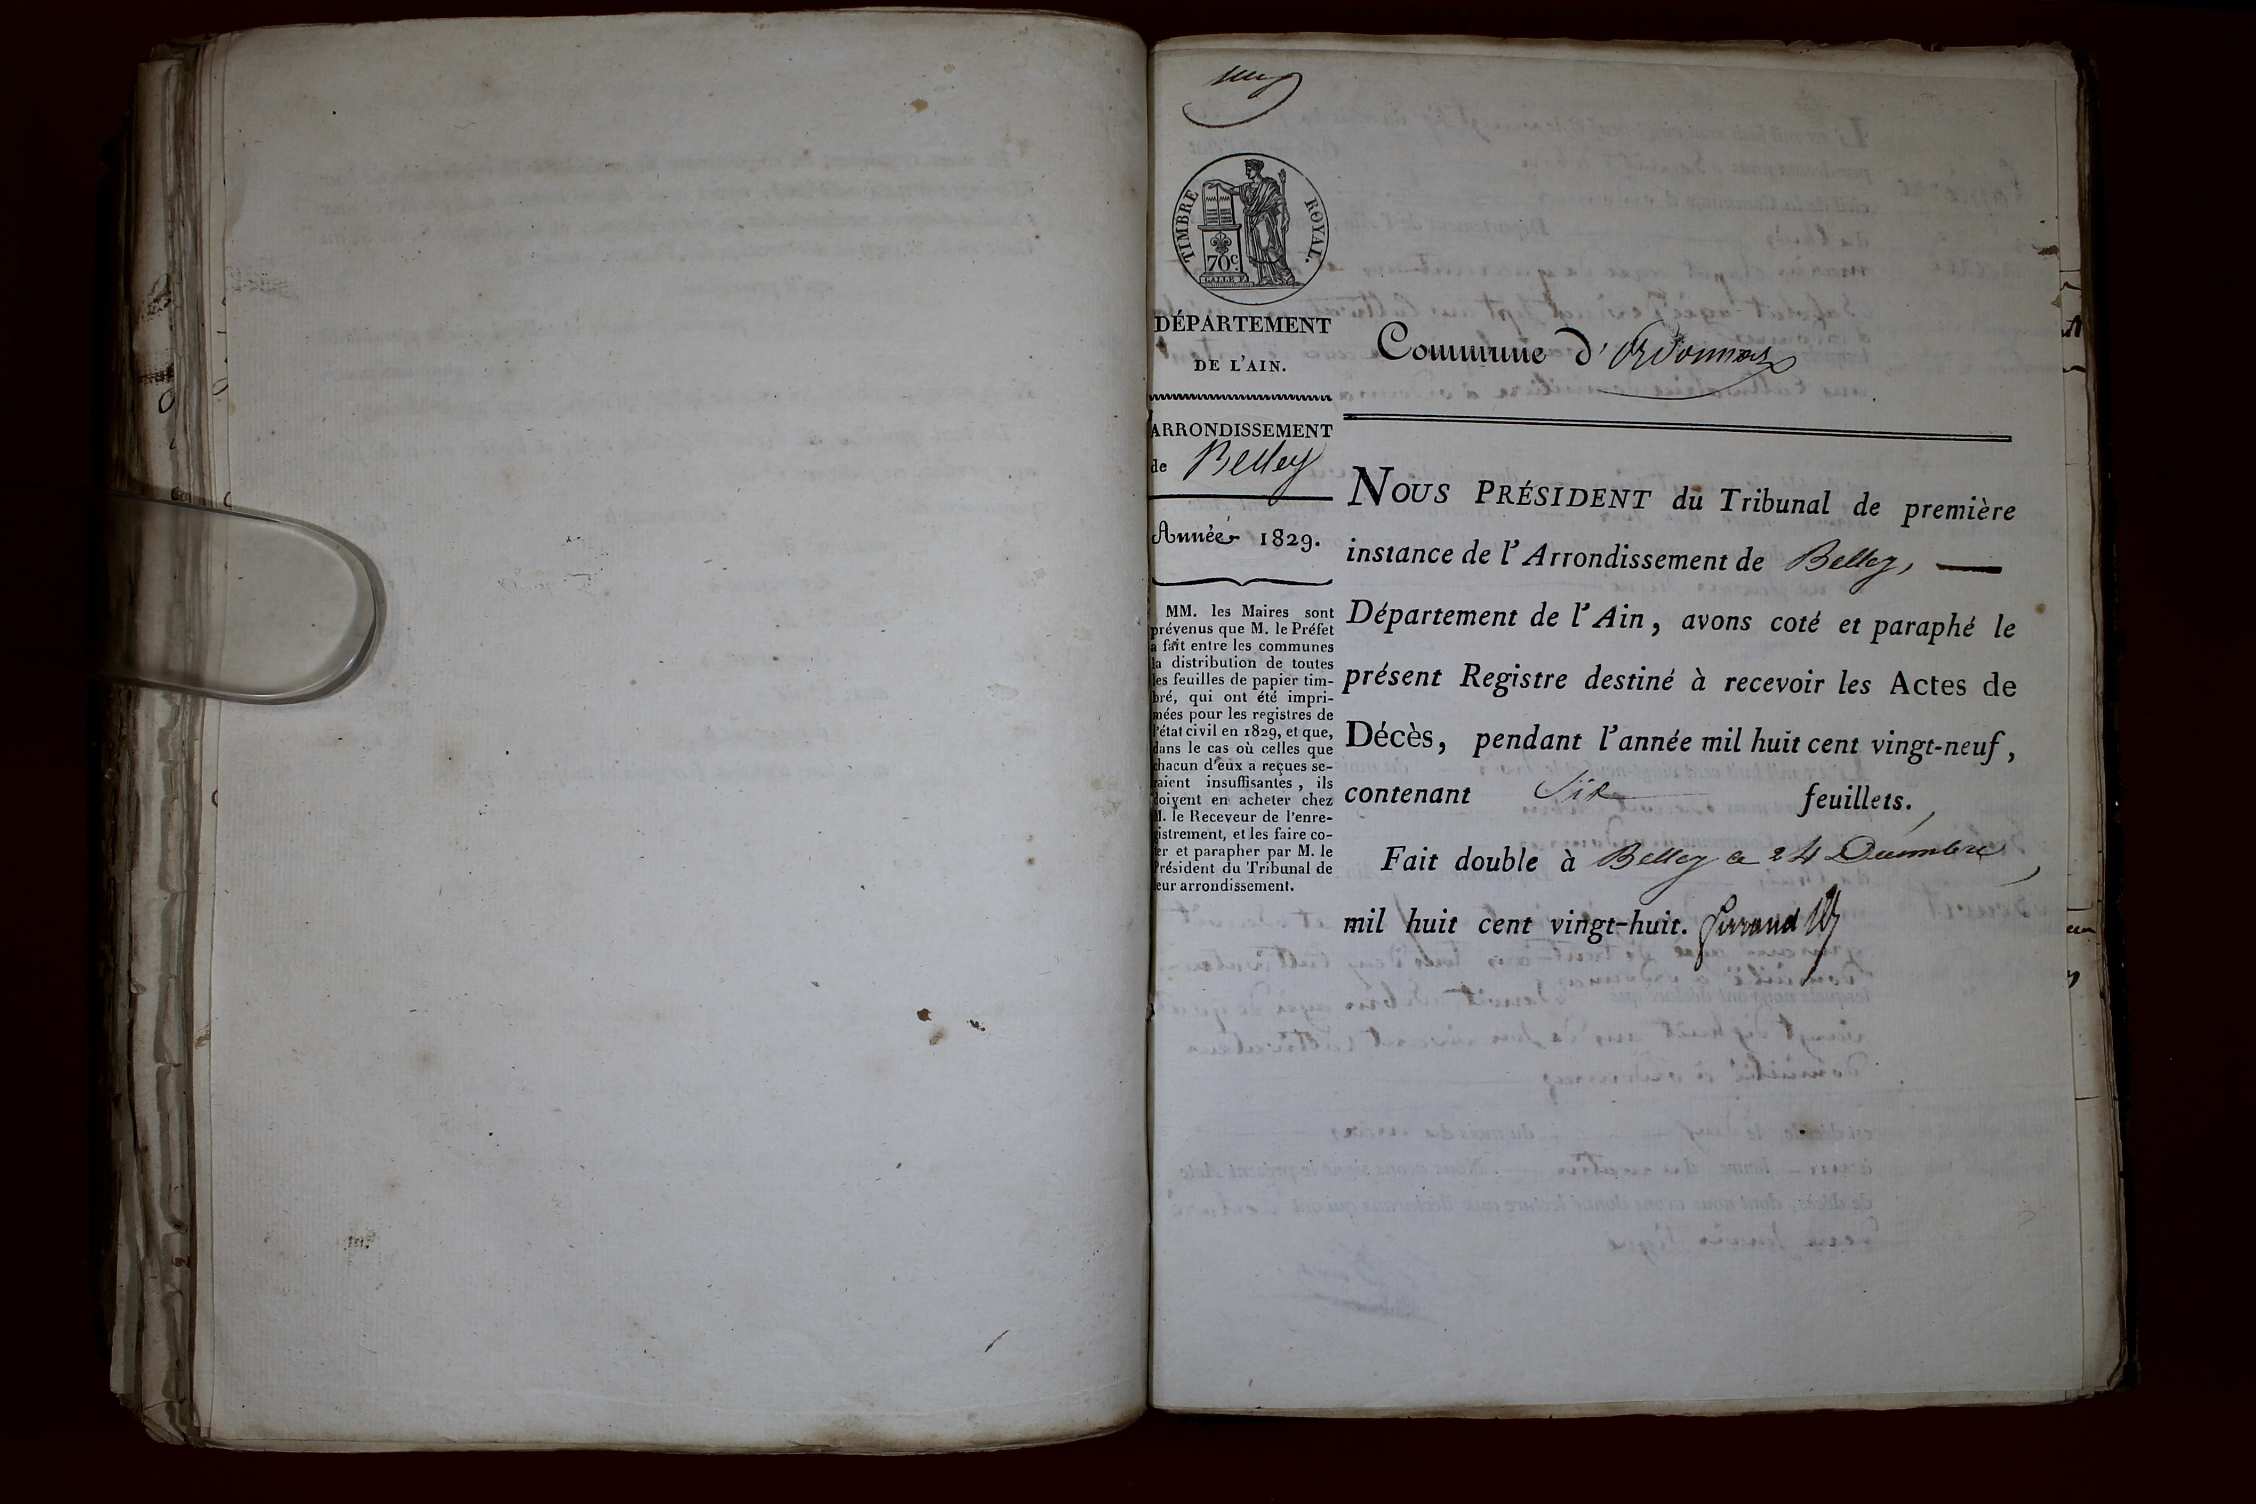 TIMBRE ROYAL.
70c.
DÉPARTEMENT
DE L'AIN.
Commune d'Ordonnas
ARRONDISSEMENT
de Belley
Année 1829.
MM. les Maires sont
prévenus que M. le Préfet
a fait entre les communes
la distribution de toutes
les feuilles de papier tim-
bré, qui ont été impri-
mées pour les registres de
l'état civil en 1829, et que,
dans le cas où celles que
chacun d'eux a reçues se-
raient insuffisantes, ils
doivent en acheter chez
M. le Receveur de l'enre-
gistrement, et les faire co-
ter et parapher par M. le
Président du Tribunal de
leur arrondissement.
NOUS PRÉSIDENT du Tribunal de première
instance de l'Arrondissement de Belley,
Département de l'Ain, avons coté et paraphé le
présent Registre destiné à recevoir les Actes de
Décès, pendant l'année mil huit cent vingt-neuf,
contenant Six feuillets.
Fait double à Belley ce 24 Décembre
mil huit cent vingt-huit.